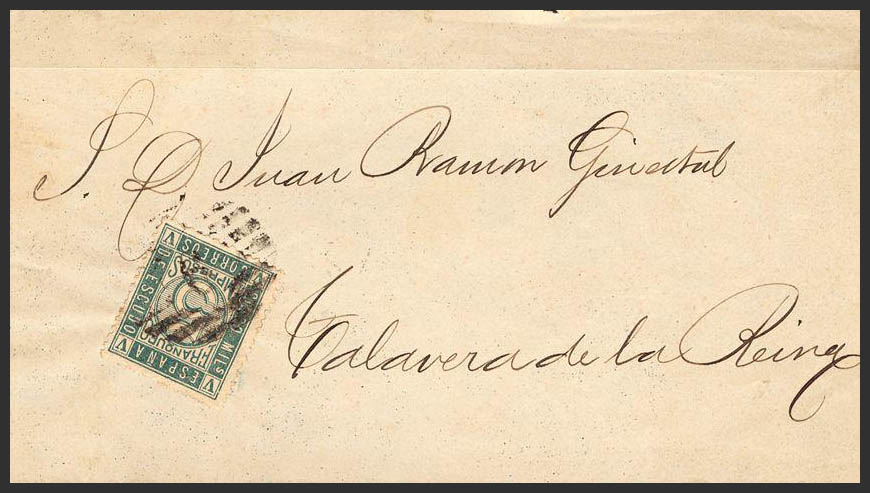 S. D. Juan Ramon Ginestal
Talavera de la Reina
CORREOS
ESPAÑA
DE ESCUDO
MILS
IMPRESOS
FRANQUEO
V
V
V